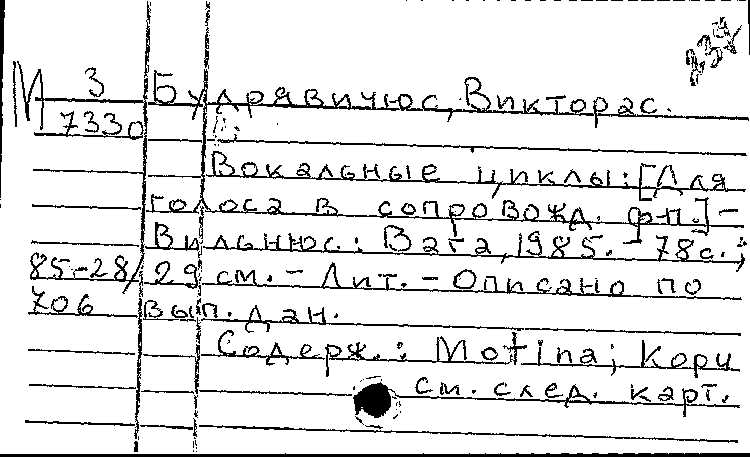 237
М 3 Будрявичюс, Викторас.
7330
Вокальные циклы: [Для
голоса в сопровожд. фп.] –
Вильнюс.: Вага, 1985. – 78с.;
85-28/ 29 см. – Лит. – Описано по
706 вып. дан.
Содерж.: Motina; Кори
см. след. карт.